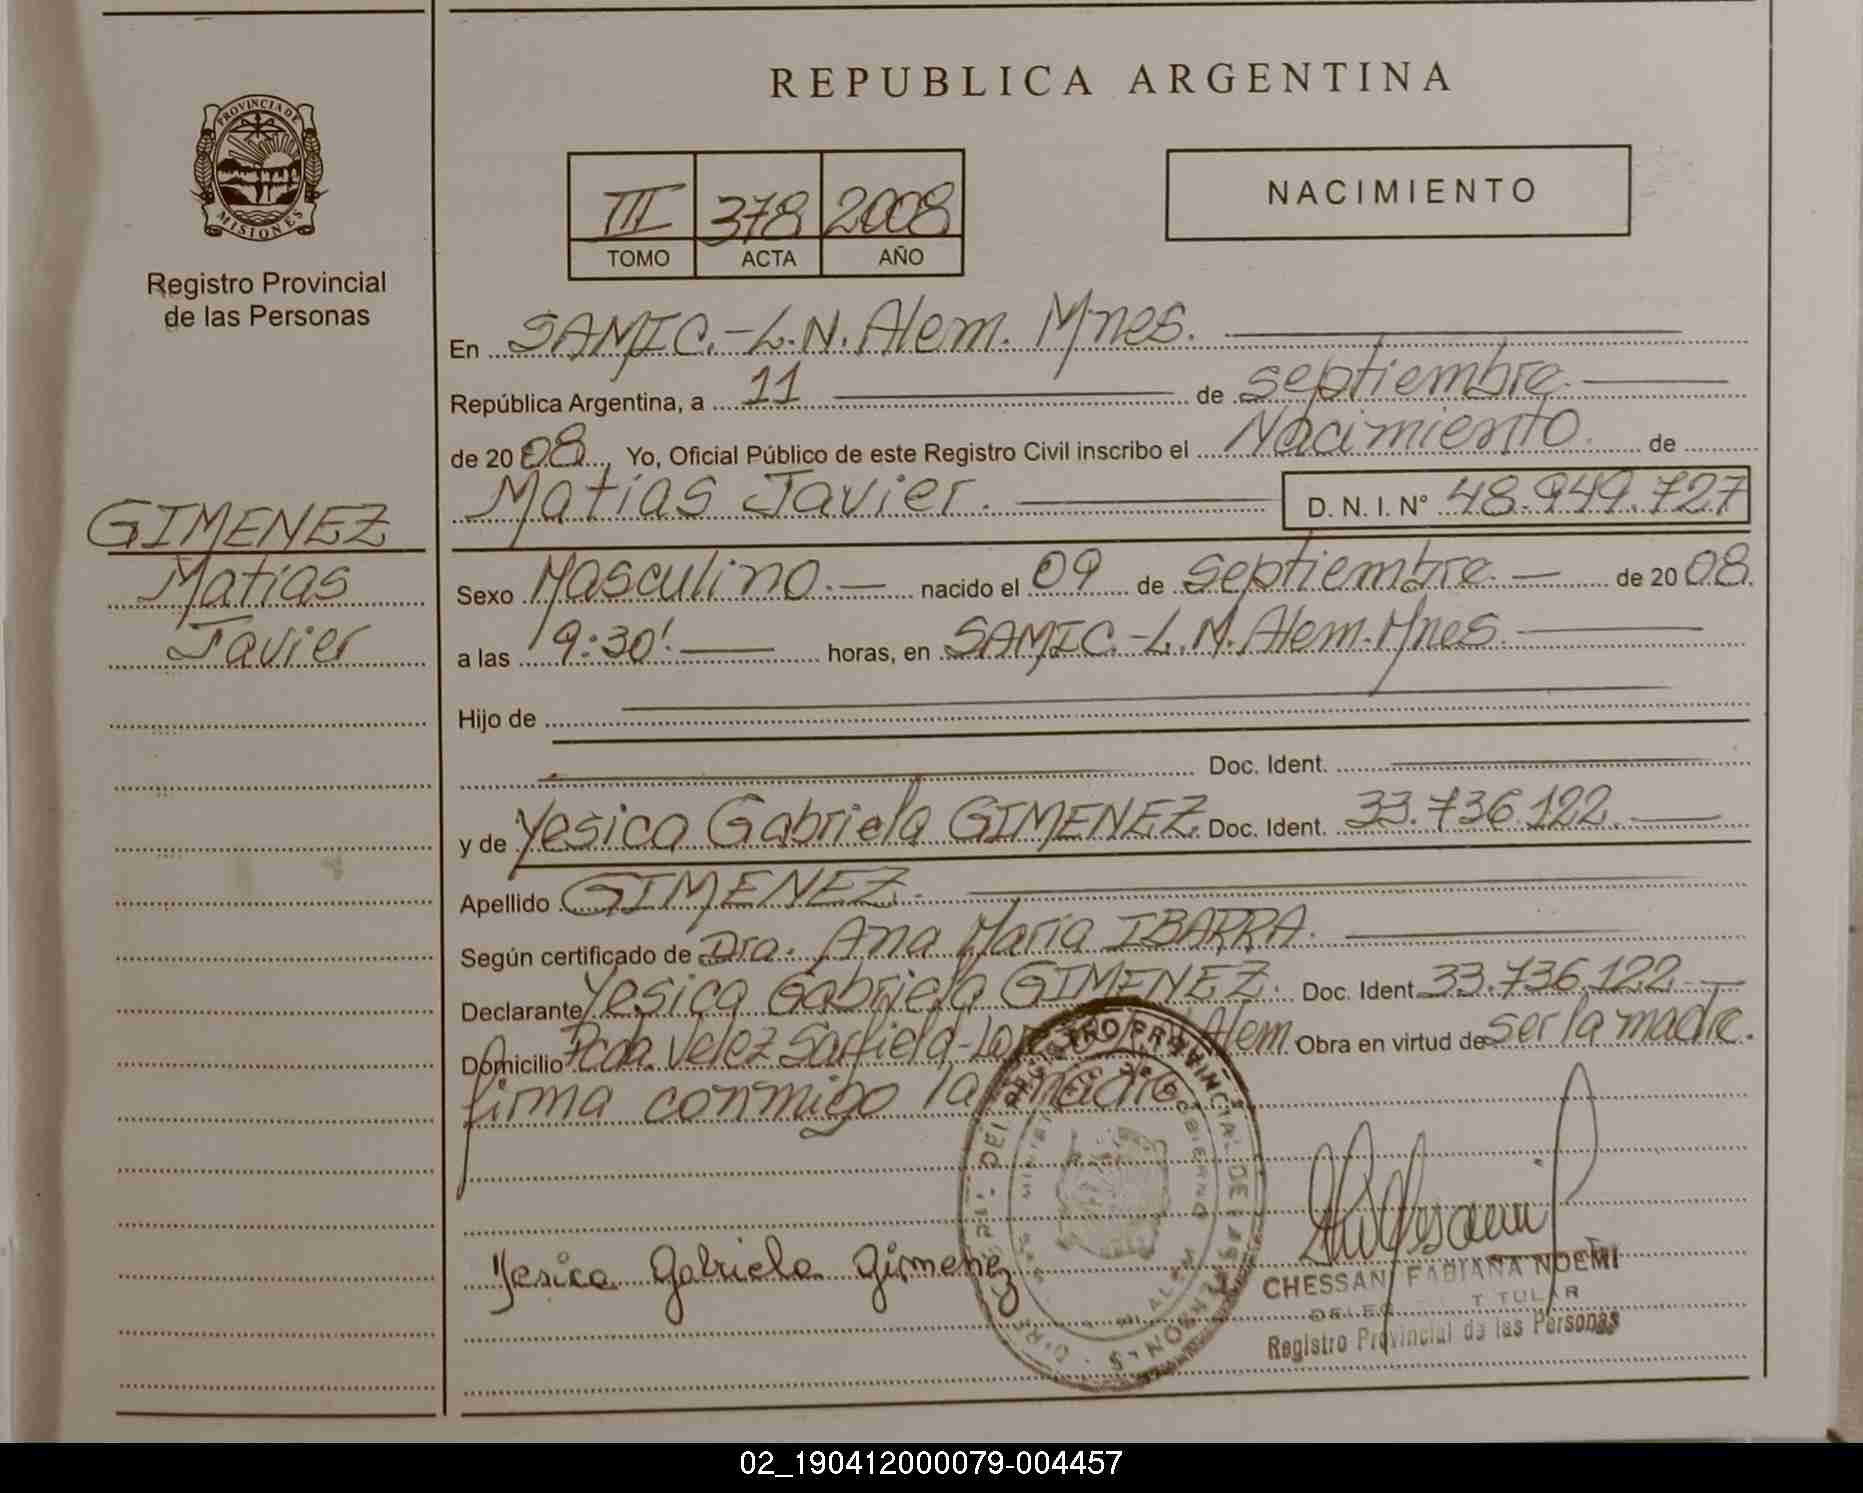 REPUBLICA ARGENTINA
PROVINCIA DE
MISIONES
Registro Provincial
de las Personas
III 378 2008
TOMO ACTA AÑO
NACIMIENTO
En SAMIC.-L.N.Alem. Mnes.
República Argentina, a 11 de septiembre.
de 2008., Yo, Oficial Público de este Registro Civil inscribo el Nacimiento. de
Matías Javier. D. N. I. N° 48.949.727
GIMENEZ
Matías
Javier
Sexo Masculino.- nacido el 09 de septiembre.- de 2008.
a las 19:30'. horas, en SAMIC.-L.N.Alem.Mnes.
Hijo de
Doc. Ident.
y de Yesica Gabriela GIMENEZ. Doc. Ident. 33.736.122.
Apellido GIMENEZ.
Según certificado de Dra. Ana María IBARRA.
Declarante Yesica Gabriela GIMENEZ. Doc. Ident 33.736.122.-
Domicilio Pcda. Velez Sarfield- Alem. Obra en virtud de ser la madre.
firma conmigo la madre
Yesica Gabriela Gimenez
CHESSANI FABIANA NOEMI
TITULAR
Registro Provincial de las Personas
REGISTRO PROVINCIAL DE LAS PERSONAS
02_190412000079-004457